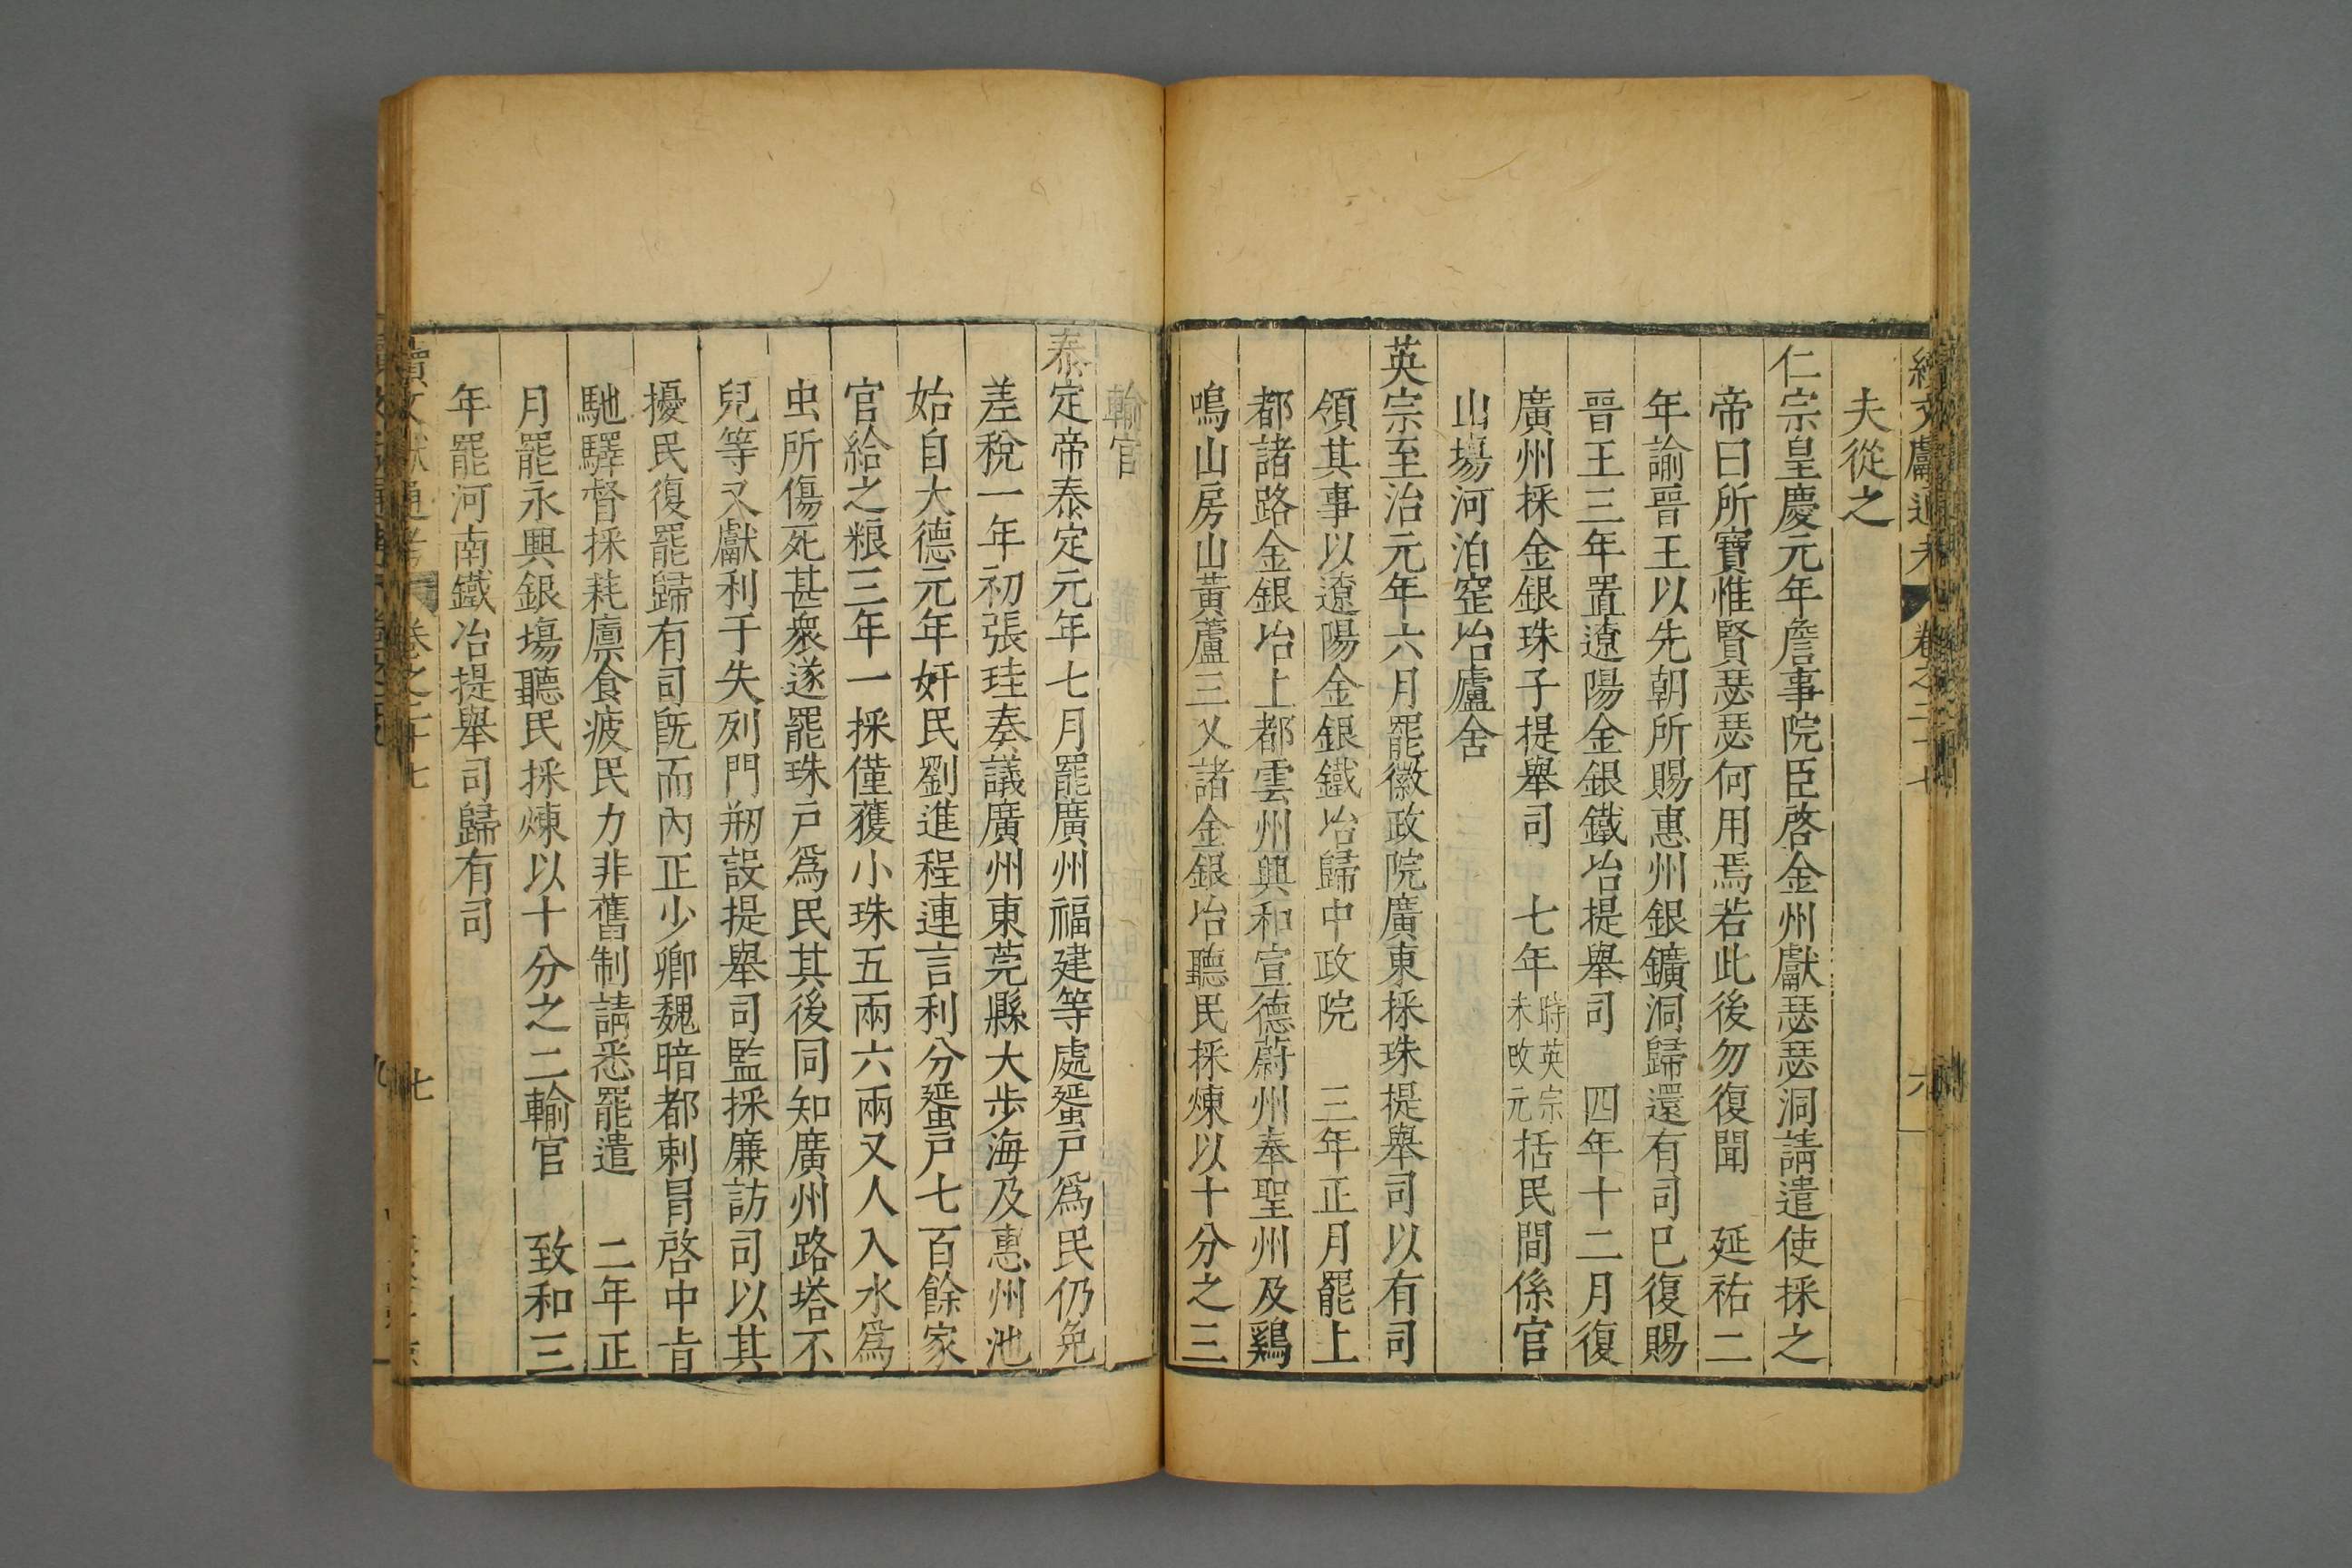 續文獻通考 卷之二十七 六
夫從之
仁宗皇慶元年詹事院臣啓金州獻瑟瑟洞請遣使採之
帝曰所寶惟賢瑟瑟何用焉若此後勿復聞 延祐二
年諭晉王以先朝所賜惠州銀鑛洞歸還有司已復賜
晉王三年置遼陽金銀鐵冶提舉司 四年十二月復
廣州採金銀珠子提舉司 七年時英宗未改元括民間係官
山場河泊窑冶廬舍
英宗至治元年六月罷徽政院廣東採珠提舉司以有司
領其事以遼陽金銀鐵冶歸中政院 三年正月罷上
都諸路金銀冶上都雲州興和宣德蔚州奉聖州及鷄
鳴山房山黃蘆三乂諸金銀冶聽民採煉以十分之三
輸官
泰定帝泰定元年七月罷廣州福建等處蜑戶爲民仍免
差稅一年初張珪奏議廣州東莞縣大步海及惠州池
始自大德元年奸民劉進程連言利分蜑戶七百餘家
官給之粮三年一採僅獲小珠五兩六兩又人入水爲
虫所傷死甚衆遂罷珠戶爲民其後同知廣州路塔不
兒等又獻利于失列門剏設提舉司監採廉訪司以其
擾民復罷歸有司旣而內正少卿魏暗都剌冐啓中㫖
馳驛督採耗廩食疲民力非舊制請悉罷遣 二年正
月罷永興銀塲聽民採煉以十分之二輸官 致和三
年罷河南鐵冶提舉司歸有司
續文獻通考 卷之二十七 七